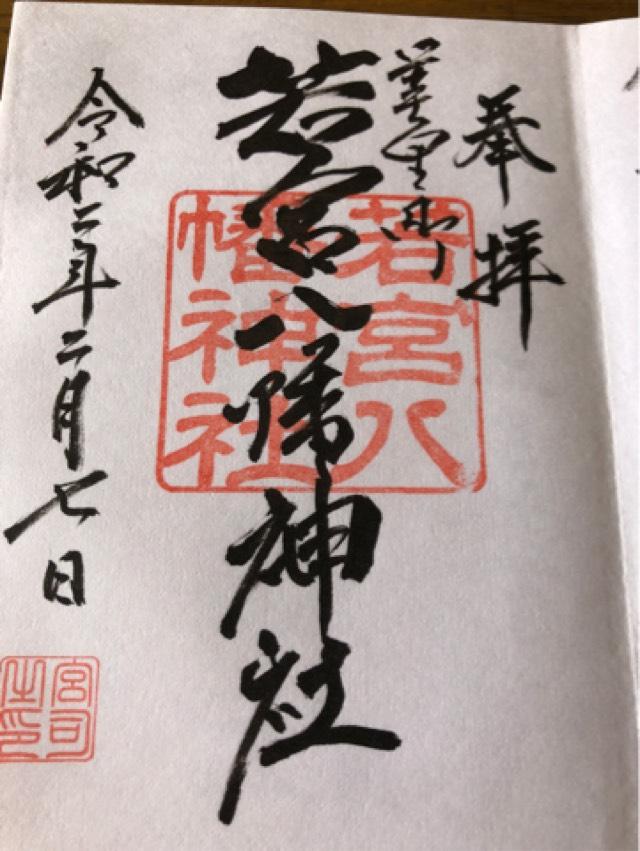 奉拝
美里町
若宮八幡神社
若宮八
幡神社
令和二年二月七日
宮司
之印